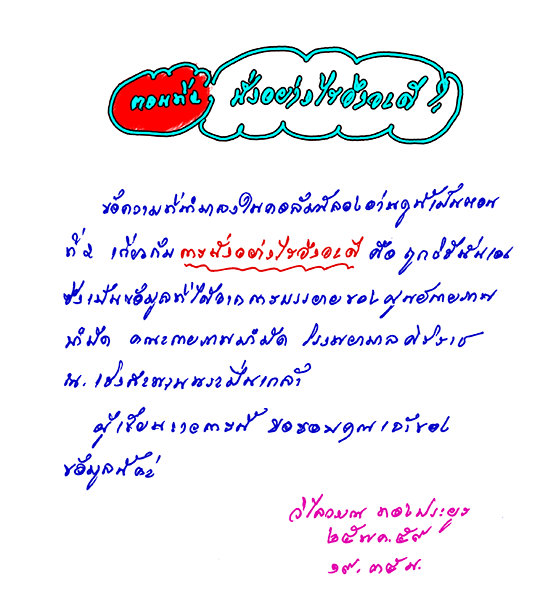 ตอนที่ ๒ นั่งอย่างไรจึงจะดี ?
ข้อความที่นำมาลงในคอลัมน์ลองอ่านดูนี้เป็นตอน
ที่ ๒ เกี่ยวกับ การนั่งอย่างไรจึงจะดี คือ ถูกวิธีนั่นเอง
ซึ่งเป็นข้อมูลที่ได้จาก การบรรยายของศูนย์กายภาพ
บำบัด คณะกายภาพบำบัด โรงพยาบาลศิริราช
ณ. เชิงสะพานพระปิ่นเกล้า
ผู้เขียนรายการนี้ ขอขอบคุณเจ้าของ
ข้อมูลนี้ค่ะ
วิไลวรรณ ทองประยูร
๒๕ พ.ค. ๕๙
๑๙. ๓๕ น.